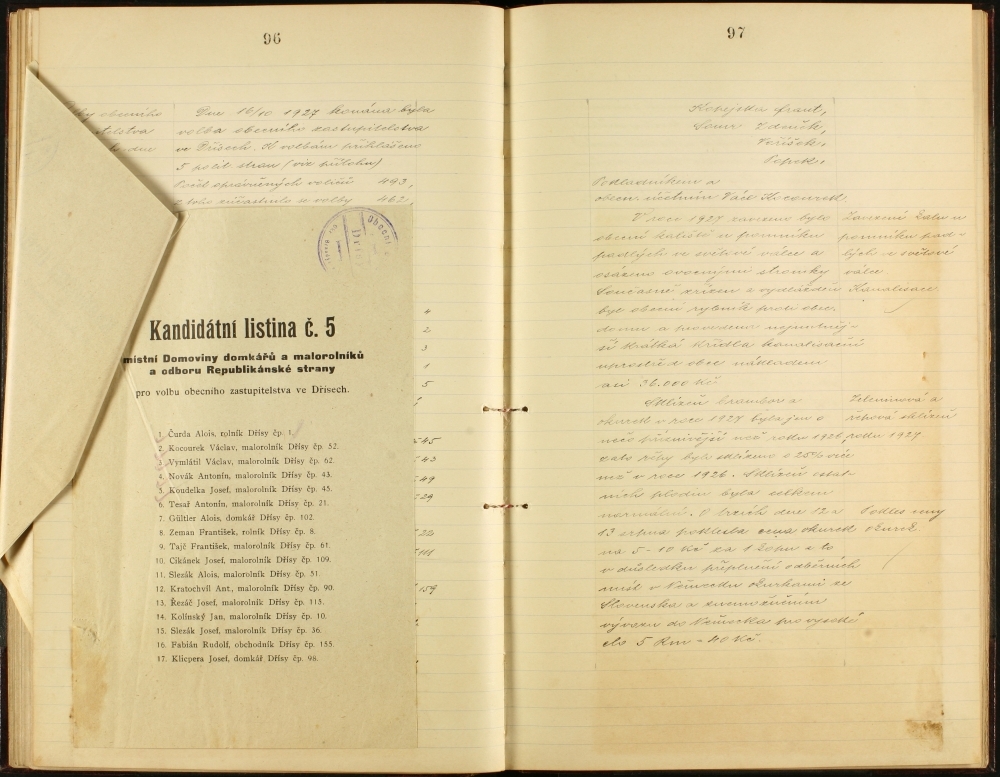 96
Dne 16/10 1927 konána byla
volba obecního zastupitelstva
ve Dřísech. K volbám přihlášeno
5 polit. stran (viz přílohu)
Počet oprávněných voličů 493,
z toho súčastnilo se volby 462
Kandidátní listina č. 5
místní Domoviny domkářů a malorolníků
a odboru Republikánské strany
pro volbu obecního zastupitelstva ve Dřísech.
1. Čurda Alois, rolník Dřísy čp. 1.
2. Kocourek Václav, malorolník Dřísy čp. 52.
3. Vymlátil Václav, malorolník Dřísy čp. 62.
4. Novák Antonín, malorolník Dřísy čp. 43.
5. Koudelka Josef, malorolník Dřísy čp. 45.
6. Tesař Antonín, malorolník Dřísy čp. 21.
7. Gültler Alois, domkář Dřísy čp. 102.
8. Zeman František, rolník Dřísy čp. 8.
9. Tajč František, malorolník Dřísy čp. 61.
10. Cikánek Josef, malorolník Dřísy čp. 109.
11. Slezák Alois, malorolník Dřísy čp. 51.
12. Kratochvíl Ant., malorolník Dřísy čp. 90.
13. Řezáč Josef, malorolník Dřísy čp. 115.
14. Kolínský Jan, malorolník Dřísy čp. 10.
15. Slezák Josef, malorolník Dřísy čp. 36.
16. Fabián Rudolf, obchodník Dřísy čp. 155.
17. Klicpera Josef, domkář Dřísy čp. 98.
4
2
3
1
5
45
43
49
29
22
111
159
97
Kopejtka frant,
Zdeněk,
Voříšek,
Popek.
Pokladníkem a
obecn. účetním Václ. Kocourek.
V roce 1927 zavezeno bylo
obecní kaliště u pomníku
padlých ve světové válce a
osázeno ovocnými stromky
Současně zřízen a vydlážděn
byl obecní rybník proti obec.
domu a provedena nejnutněj-
ší krátká křídla kanalisační
uprostřed obce nákladem
asi 36.000 Kč.
Zavezení kalu u
pomníku pad-
lých v světové
válce.
Kanalisace
Sklizeň brambor a
okurek v roce 1927 byla jen o
něco příznivější než roku 1926,
žito žita bylo sklizeno o 25% více
než v roce 1926. Sklizeň ostat-
ních plodin byla celkem
normální. O trzích dne 12 a
13 srpna poklesla cena okurek
na 5-10 Kč za 1 kopu a to
v důsledku přeplnění odběrních
míst v Německu okurkami ze
Slovenska a znemožněním
vývozu do Německa pro vysoké
clo 5 Rm = 40 Kč.
Zeleninová a
řepová sklizeň
roku 1927
Pokles ceny
okurek.